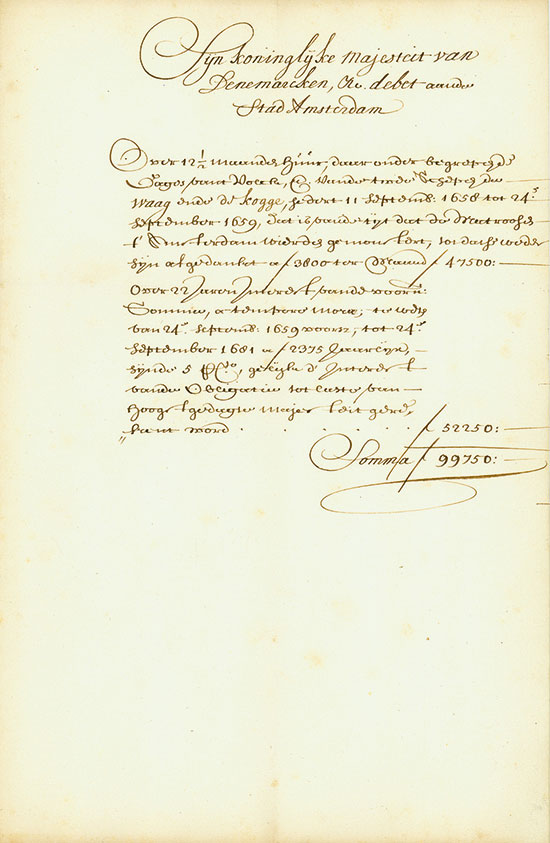 Sijn koninglijke Majesteit van
Denemarcken, &c. debet aande
Stad Amsterdam
Over 12½ maanden huur, daar onder begrepen de
Gages vant Volck, &c. vande twee Schepen de
Waag ende de Kogge, sedert 11 Septemb: 1658 tot 24:
September 1659, dat is vande tijt dat de Matroosen
t' Amsterdam wierden gemonstert, tot dat se weder
sijn afgedanckt a ƒ 3800 ter Maand ƒ 47500:
Over 22 Jaren Interest vande voorn:
Somma, a tempore moræ; te weten
van 24: Septemb: 1659 voorsz; tot 24:
September 1681 a ƒ 2375 Jaarlijx,
sijnde 5 P Cto, gelijk d' Interest
vande Obligatie tot laste van
hoogstgedagte Majesteit gere-
kent word . . . . . . ƒ 52250:
Somma ƒ 99750: